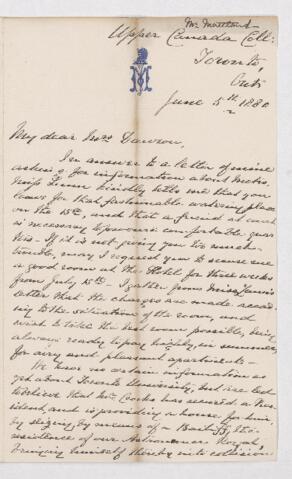 Upper Canada Coll:
Toronto,
Ont:
June 5th 1880
M
My dear Mrs Dawson,
In answer to a letter of mine
asking for information about Metis.
Miss kindly tells me that you
leave for that fashionable watering place
on the 15th, and that a friend at court
is necessary to procure comfortable quar
ters - If it is not giving you too much
trouble, may I request you to secure me
a good room at the Hotel for three weeks
from July 15th - I gather from Miss
letter that the charges are made accord
ing to the situation of the room, and
wish to take the best room possible, being
always ready to pay highly, in summer,
for airy and pleasant apartments -
We have no certain information as
yet about Toronto University, but are led
to believe that Mr. has secured a Pre
sident, and is providing a house for him,
by seizing, by means of a the
residence of our Astronomer Royal,
bringing himself thereby into collision